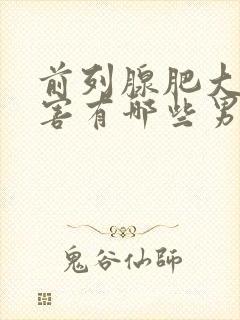 前列腺肥大
害有哪些男
鬼谷仙師